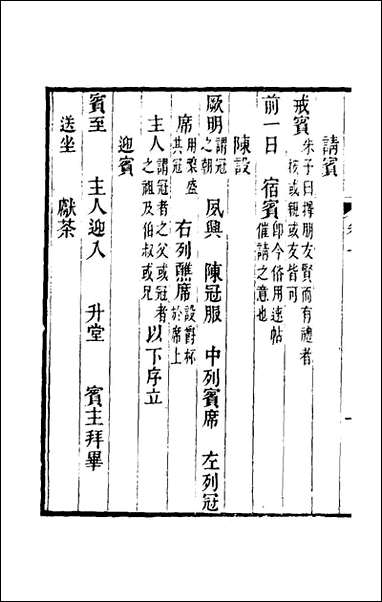 請賓
戒賓 朱子曰擇朋友賢而有禮者按或親或友皆可
前一日 宿賓 卽今俗用速帖催請之意也
陳設
厥明 謂冠之朝 夙興 陳冠服 中列賓席 左列冠
席 用槃盛其冠 右列醮席 設爵杯於席上
主人 謂冠者之父或冠者之祖及伯叔或兄 以下序立
迎賓
賓至 主人迎入 升堂 賓主拜畢
送坐 獻茶